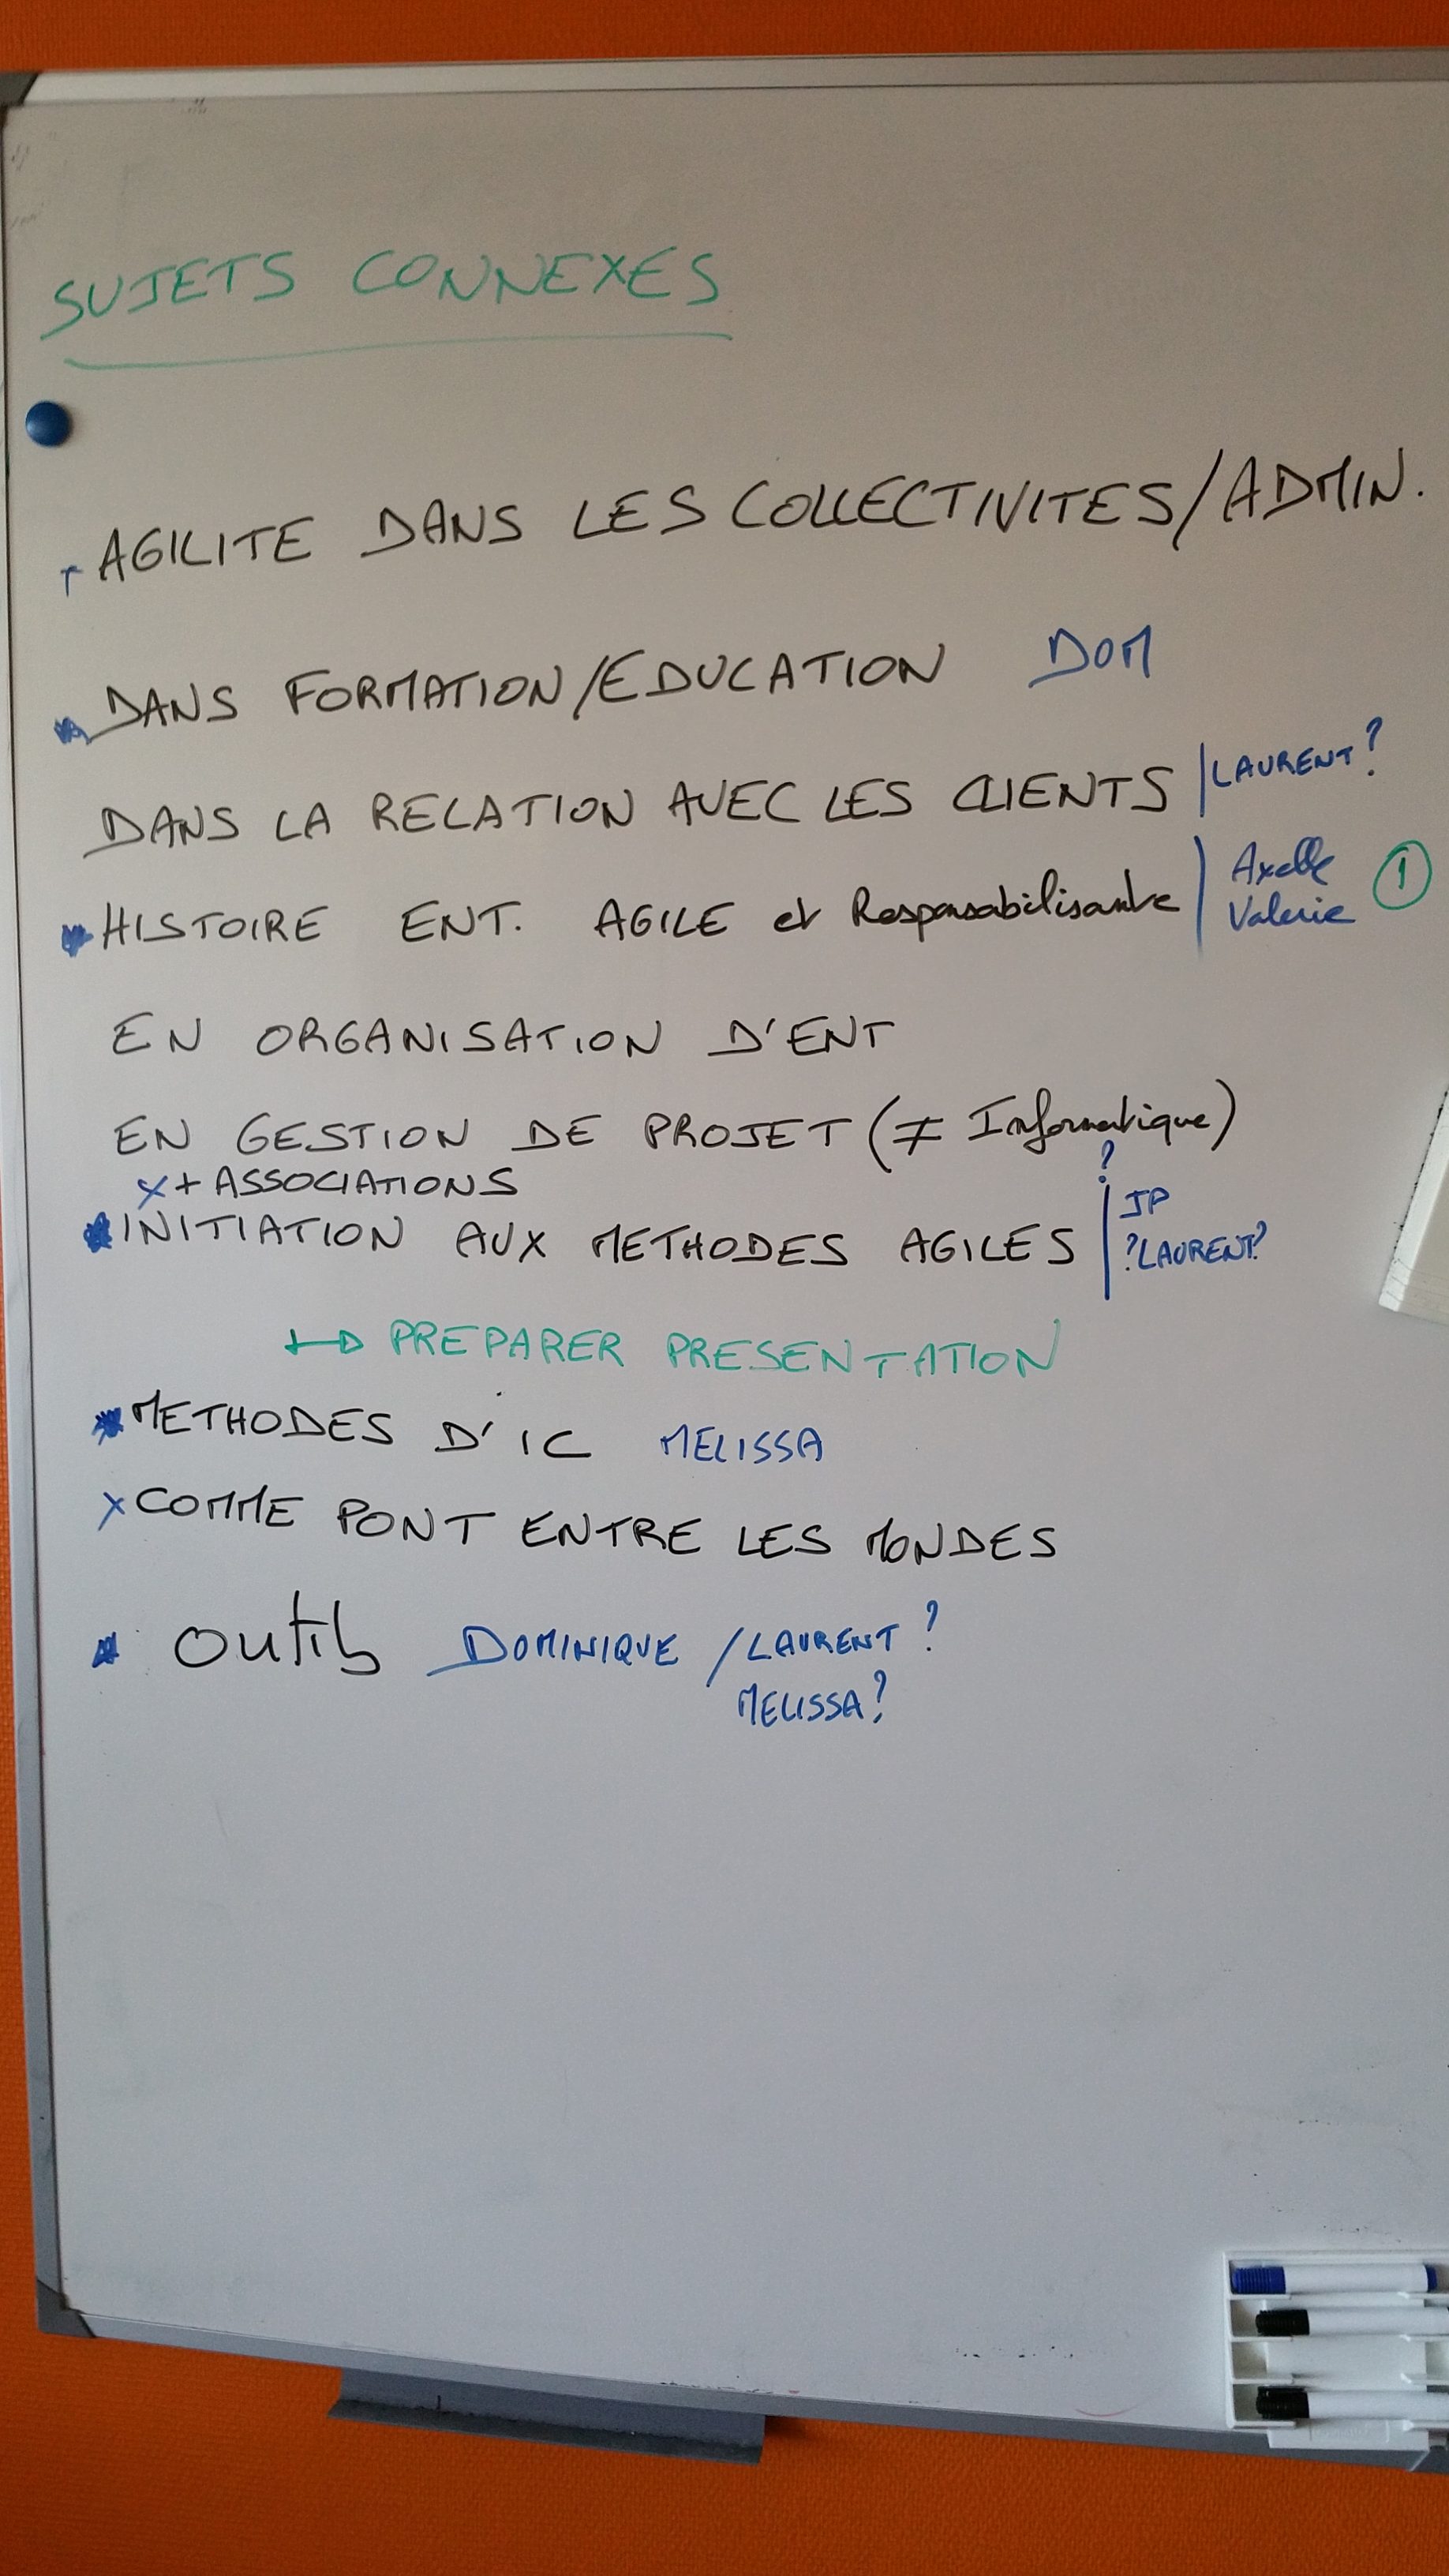 SUJETS CONNEXES
AGILITE DANS LES COLLECTIVITES/ADMIN.
DANS FORMATION/EDUCATION DOM
DANS LA RELATION AVEC LES CLIENTS | LAURENT?
HISTOIRE ENT. AGILE et Responsabilisante | Axelle Valerie ①
EN ORGANISATION D'ENT
EN GESTION DE PROJET (≠ Informatique)
x + ASSOCIATIONS
INITIATION AUX METHODES AGILES | ? JP ?LAURENT?
↦ PREPARER PRESENTATION
METHODES D'IC MELISSA
x COMME PONT ENTRE LES MONDES
Outils DOMINIQUE / LAURENT ?
MELISSA?